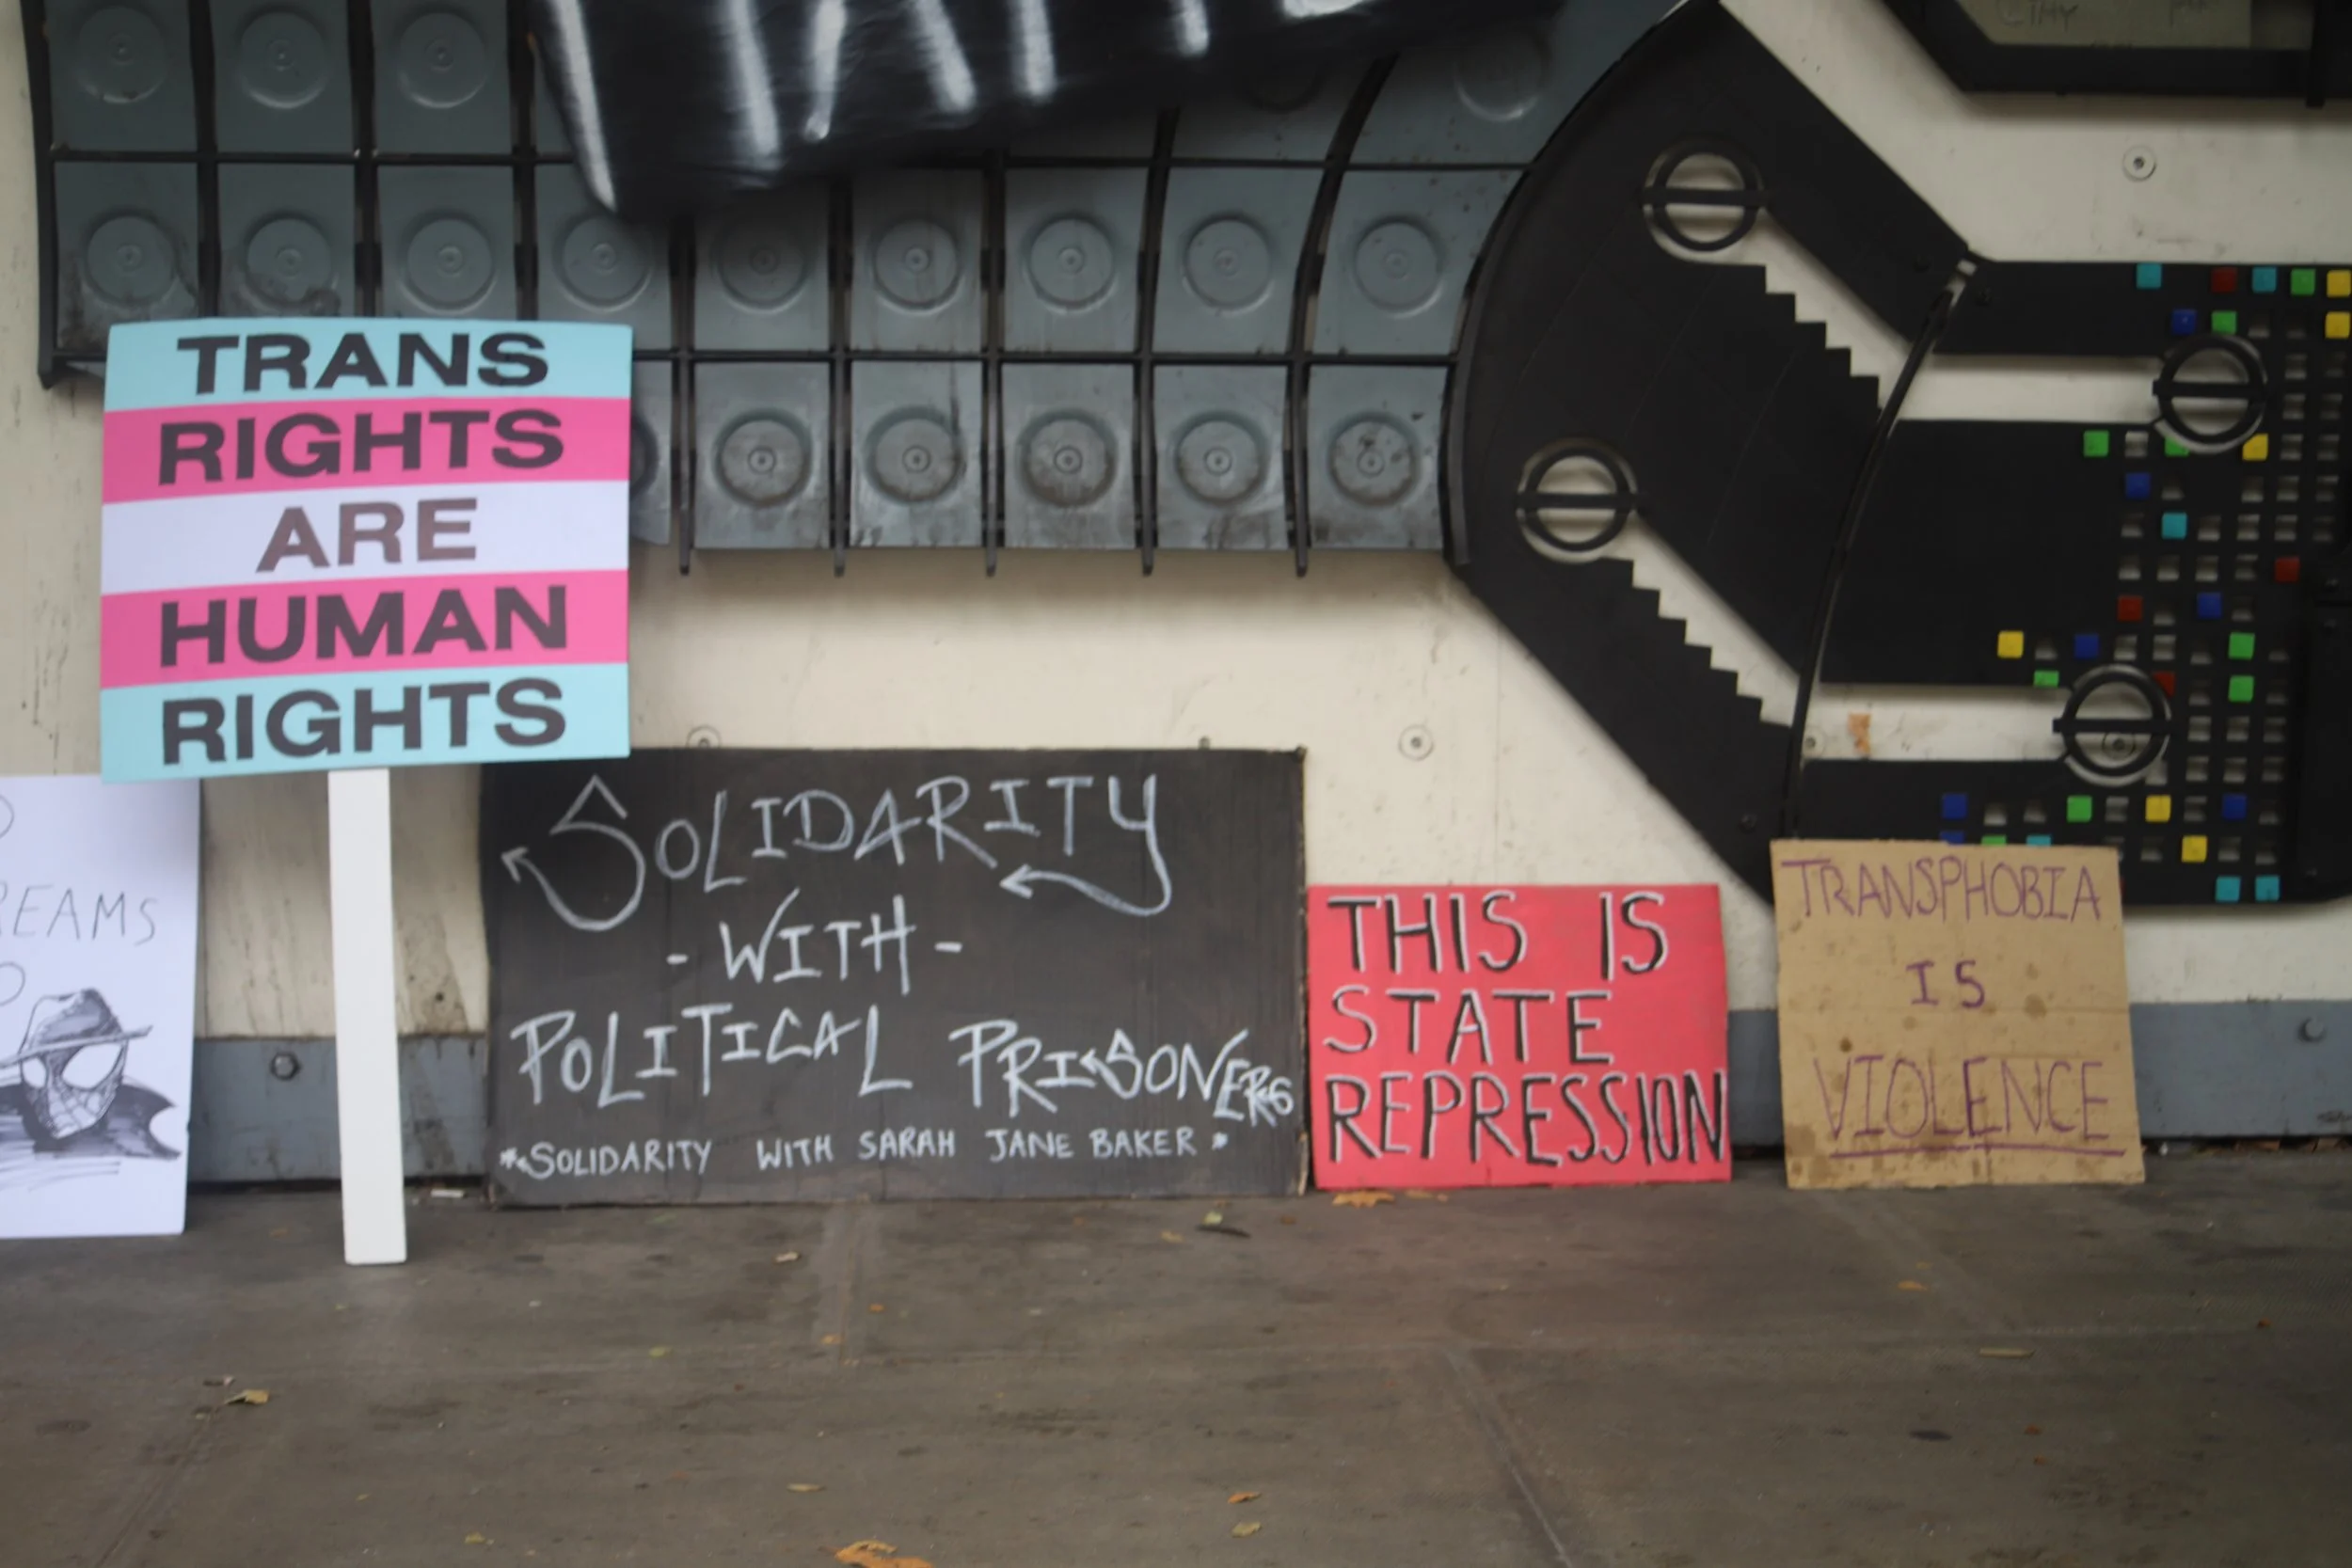 TRANS
RIGHTS
ARE
HUMAN
RIGHTS
SOLIDARITY
- WITH -
POLITICAL PRISONERS
*SOLIDARITY WITH SARAH JANE BAKER*
THIS IS
STATE
REPRESSION
TRANSPHOBIA
IS
VIOLENCE